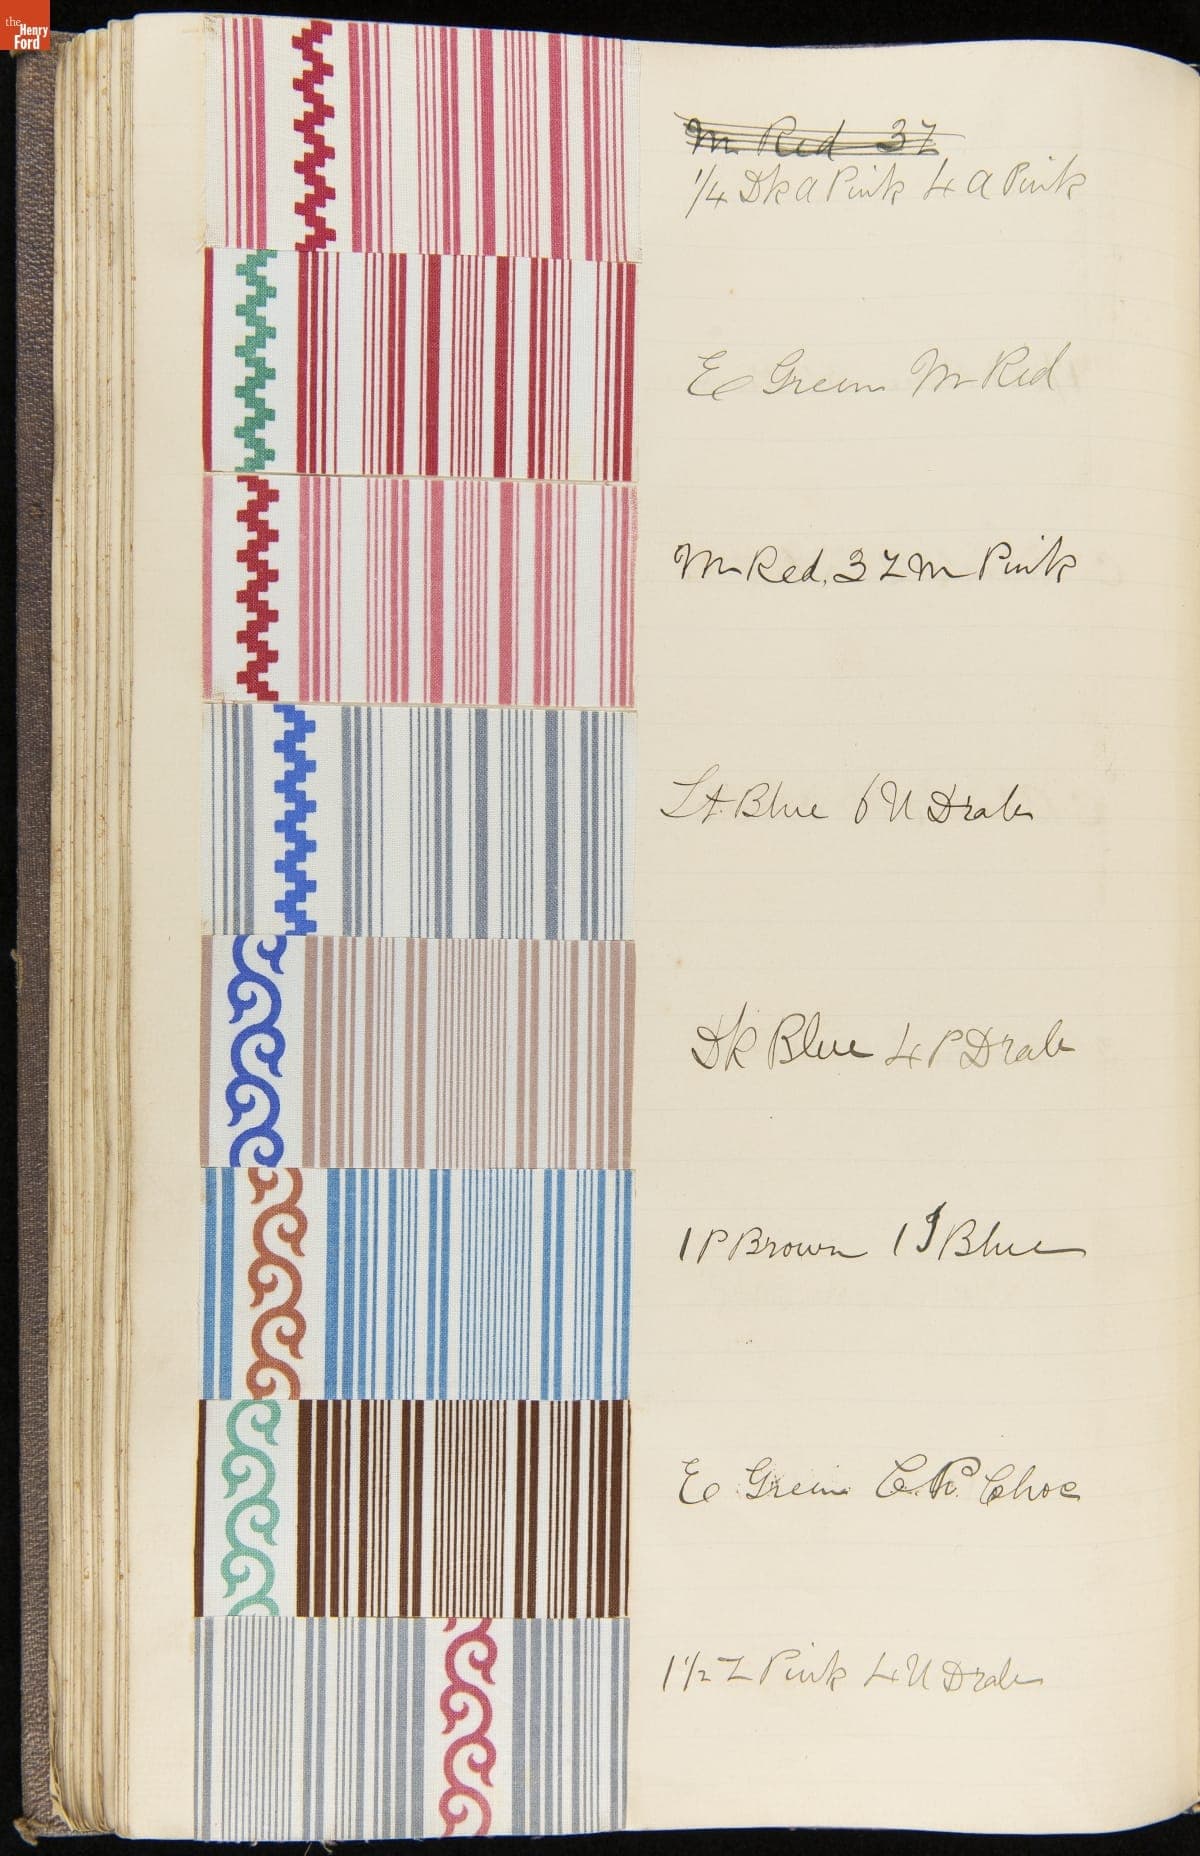 the
Henry
Ford
M Red 3Z
1/4 Dk a Pink 4 a Pink
E Green M Red
M Red. 3 Z M Pink
Lt Blue 6 U Drab
Dk Blue 4 P Drab
1 P Brown 1 J Blue
E Green C.R. Choc
1 1/2 Z Pink 4 U Drab